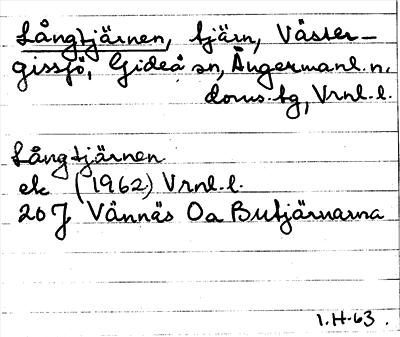 Långtjärnen, tjärn, Väster-
gissjö, Gideå sn, Ångermanl. n.
doms.tg, Vrnl.l.
Långtjärnen
ek (1962) Vrnl.l.
20 J Vännäs Oa Butjärnarna
1.H-63.